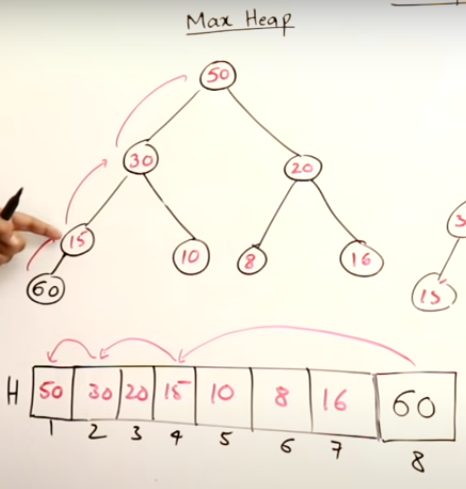 Max Heap
50
30 20
15 10 8 16
60
15
H 50 30 20 15 10 8 16 60
1 2 3 4 5 6 7 8